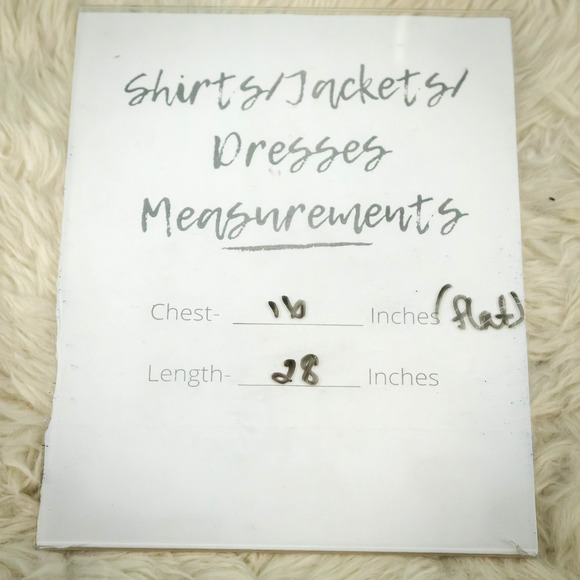 Shirts/Jackets/
Dresses
Measurements
Chest- 16 Inches (flat)
Length- 28 Inches